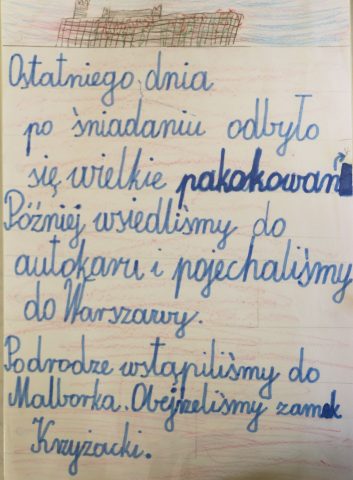 Ostatniego dnia
po śniadaniu odbyło
się wielkie pakokowan
Później wsiedliśmy do
autokaru i pojechaliśmy
do Warszawy.
Podrodze wstąpiliśmy do
Malborka. Obejżeliśmy zamek
Krzyżacki.